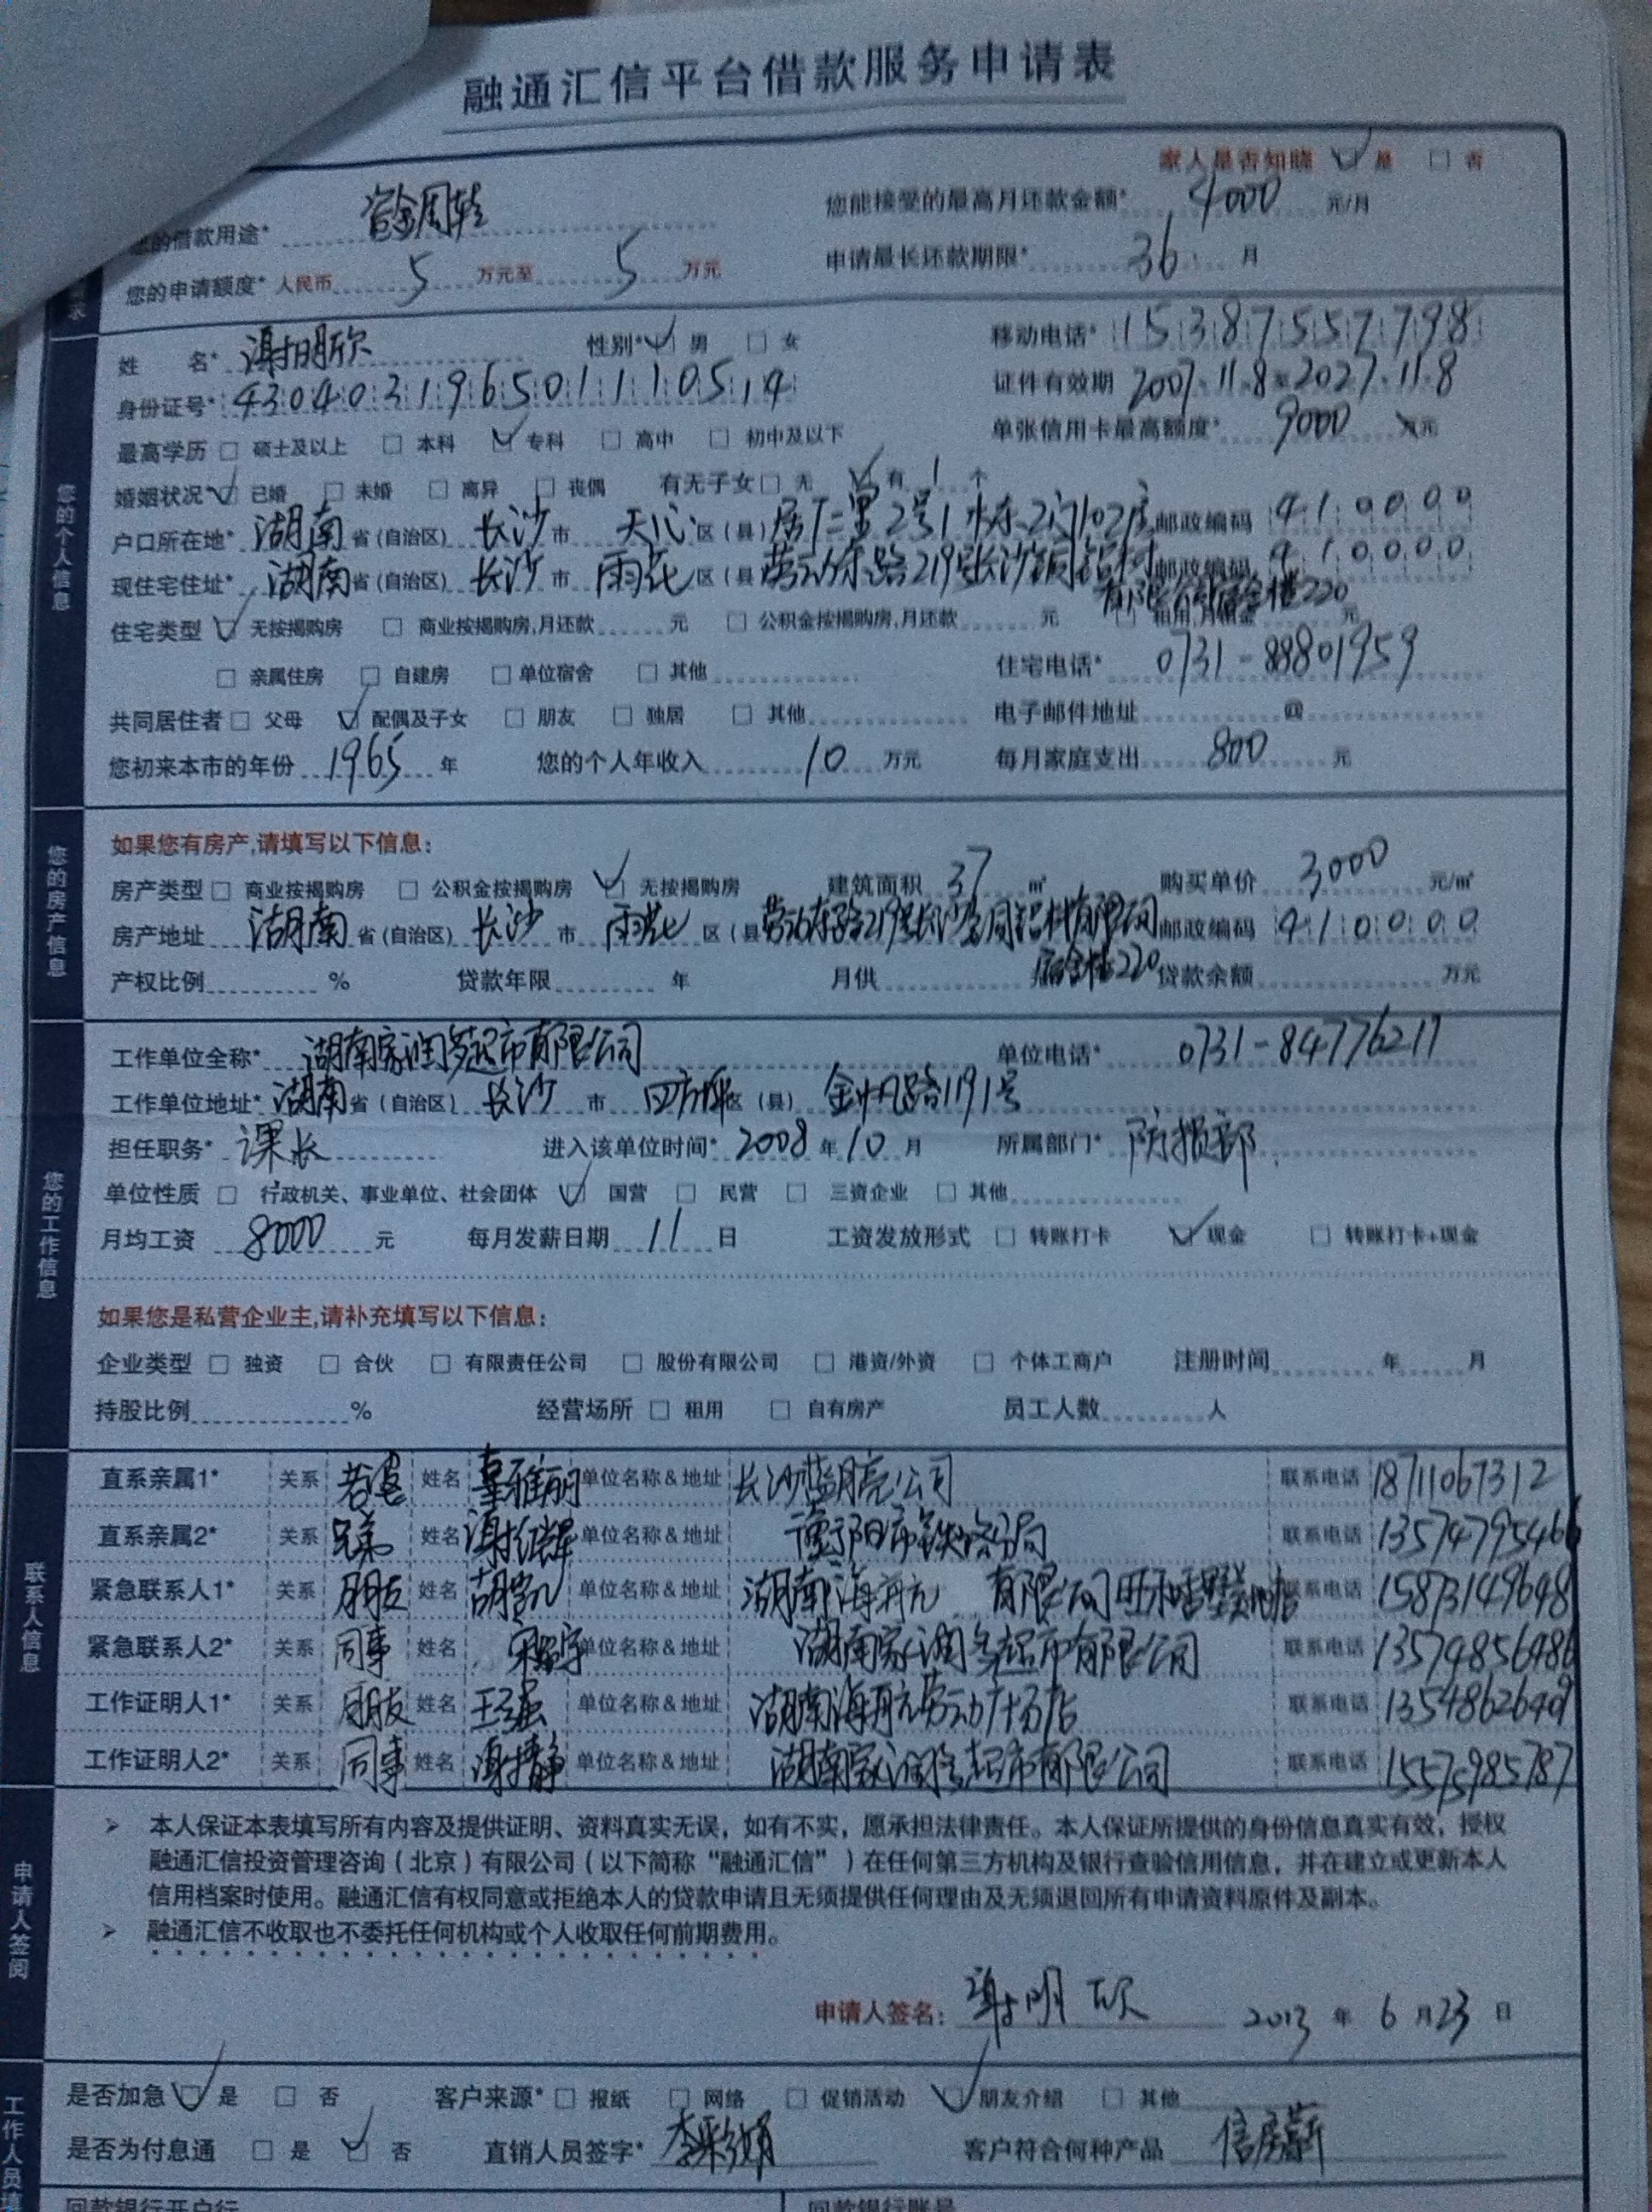 融通汇信平台借款服务申请表
家人是否知晓 ☑ 是 □ 否
您的借款用途* 资金周转 您能接受的最高月还款金额* 4000 元/月
您的申请额度* 人民币 5 万元至 5 万元 申请最长还款期限* 36 月
求
您的个人信息
姓 名* 谢明欣 性别* ☑ 男 □ 女 移动电话* 15387557798
身份证号* 430403196501110514 证件有效期 2007.11.8至2027.11.8
最高学历 □ 硕士及以上 □ 本科 ☑ 专科 □ 高中 □ 初中及以下 单张信用卡最高额度* 9000 元
婚姻状况* ☑ 已婚 □ 未婚 □ 离异 □ 丧偶 有无子女 □ 无 ☑ 有 1 个
户口所在地* 湖南 省(自治区) 长沙 市 天心 区(县) 2号1栋 2门102房 邮政编码 410000
现住宅住址* 湖南 省(自治区) 长沙 市 雨花 区(县 劳动东路219号长沙铜铝材 邮政编码 410000
有限公司宿舍楼220
住宅类型 ☑ 无按揭购房 □ 商业按揭购房,月还款 元 □ 公积金按揭购房,月还款 元 □ 租用,月租金 元
□ 亲属住房 □ 自建房 □ 单位宿舍 □ 其他 住宅电话* 0731-88801959
共同居住者 □ 父母 ☑ 配偶及子女 □ 朋友 □ 独居 □ 其他 电子邮件地址 @
您初来本市的年份 1965 年 您的个人年收入 10 万元 每月家庭支出 800 元
您的房产信息
如果您有房产,请填写以下信息:
房产类型 □ 商业按揭购房 □ 公积金按揭购房 ☑ 无按揭购房 建筑面积 37 ㎡ 购买单价 3000 元/㎡
房产地址 湖南 省(自治区) 长沙 市 雨花 区(县 劳动东路219号长沙铜铝材有限公司 邮政编码 410000
宿舍楼220
产权比例 % 贷款年限 年 月供 元 贷款余额 万元
您的工作信息
工作单位全称* 湖南家润多超市有限公司 单位电话* 0731-84776211
工作单位地址* 湖南 省(自治区) 长沙 市 四方坪 区(县) 金帆路1191号
担任职务* 课长 进入该单位时间* 2008 年 10 月 所属部门* 防损部
单位性质 □ 行政机关、事业单位、社会团体 ☑ 国营 □ 民营 □ 三资企业 □ 其他
月均工资 8000 元 每月发薪日期 11 日 工资发放形式 □ 转账打卡 ☑ 现金 □ 转账打卡+现金
如果您是私营企业主,请补充填写以下信息:
企业类型 □ 独资 □ 合伙 □ 有限责任公司 □ 股份有限公司 □ 港资/外资 □ 个体工商户 注册时间 年 月
持股比例 % 经营场所 □ 租用 □ 自有房产 员工人数 人
联系人信息
直系亲属1* 关系 老婆 姓名 雅丽 单位名称&地址 长沙蓝月亮公司 联系电话 18711067312
直系亲属2* 关系 兄弟 姓名 谢红辉 单位名称&地址 衡阳市铁路分局 联系电话 13574795466
紧急联系人1* 关系 朋友 姓名 胡凯 单位名称&地址 湖南海航 有限公司 联系电话 15873149648
紧急联系人2* 关系 同事 姓名 宋 宇 单位名称&地址 湖南家润多超市有限公司 联系电话 13574856486
工作证明人1* 关系 朋友 姓名 王强 单位名称&地址 湖南海航劳动广场店 联系电话 13548626409
工作证明人2* 关系 同事 姓名 谢静 单位名称&地址 湖南家润多超市有限公司 联系电话 15575985787
申请人签阅
➢ 本人保证本表填写所有内容及提供证明、资料真实无误，如有不实，愿承担法律责任。本人保证所提供的身份信息真实有效，授权
融通汇信投资管理咨询（北京）有限公司（以下简称“融通汇信”）在任何第三方机构及银行查验信用信息，并在建立或更新本人
信用档案时使用。融通汇信有权同意或拒绝本人的贷款申请且无须提供任何理由及无须退回所有申请资料原件及副本。
➢ 融通汇信不收取也不委托任何机构或个人收取任何前期费用。
申请人签名: 谢明欣 2013 年 6 月 23 日
工作人员填
是否加急 ☑ 是 □ 否 客户来源* □ 报纸 □ 网络 □ 促销活动 ☑ 朋友介绍 □ 其他
是否为付息通 □ 是 ☑ 否 直销人员签字* 李彩娟 客户符合何种产品 信房薪
回款银行开户行 回款银行账号